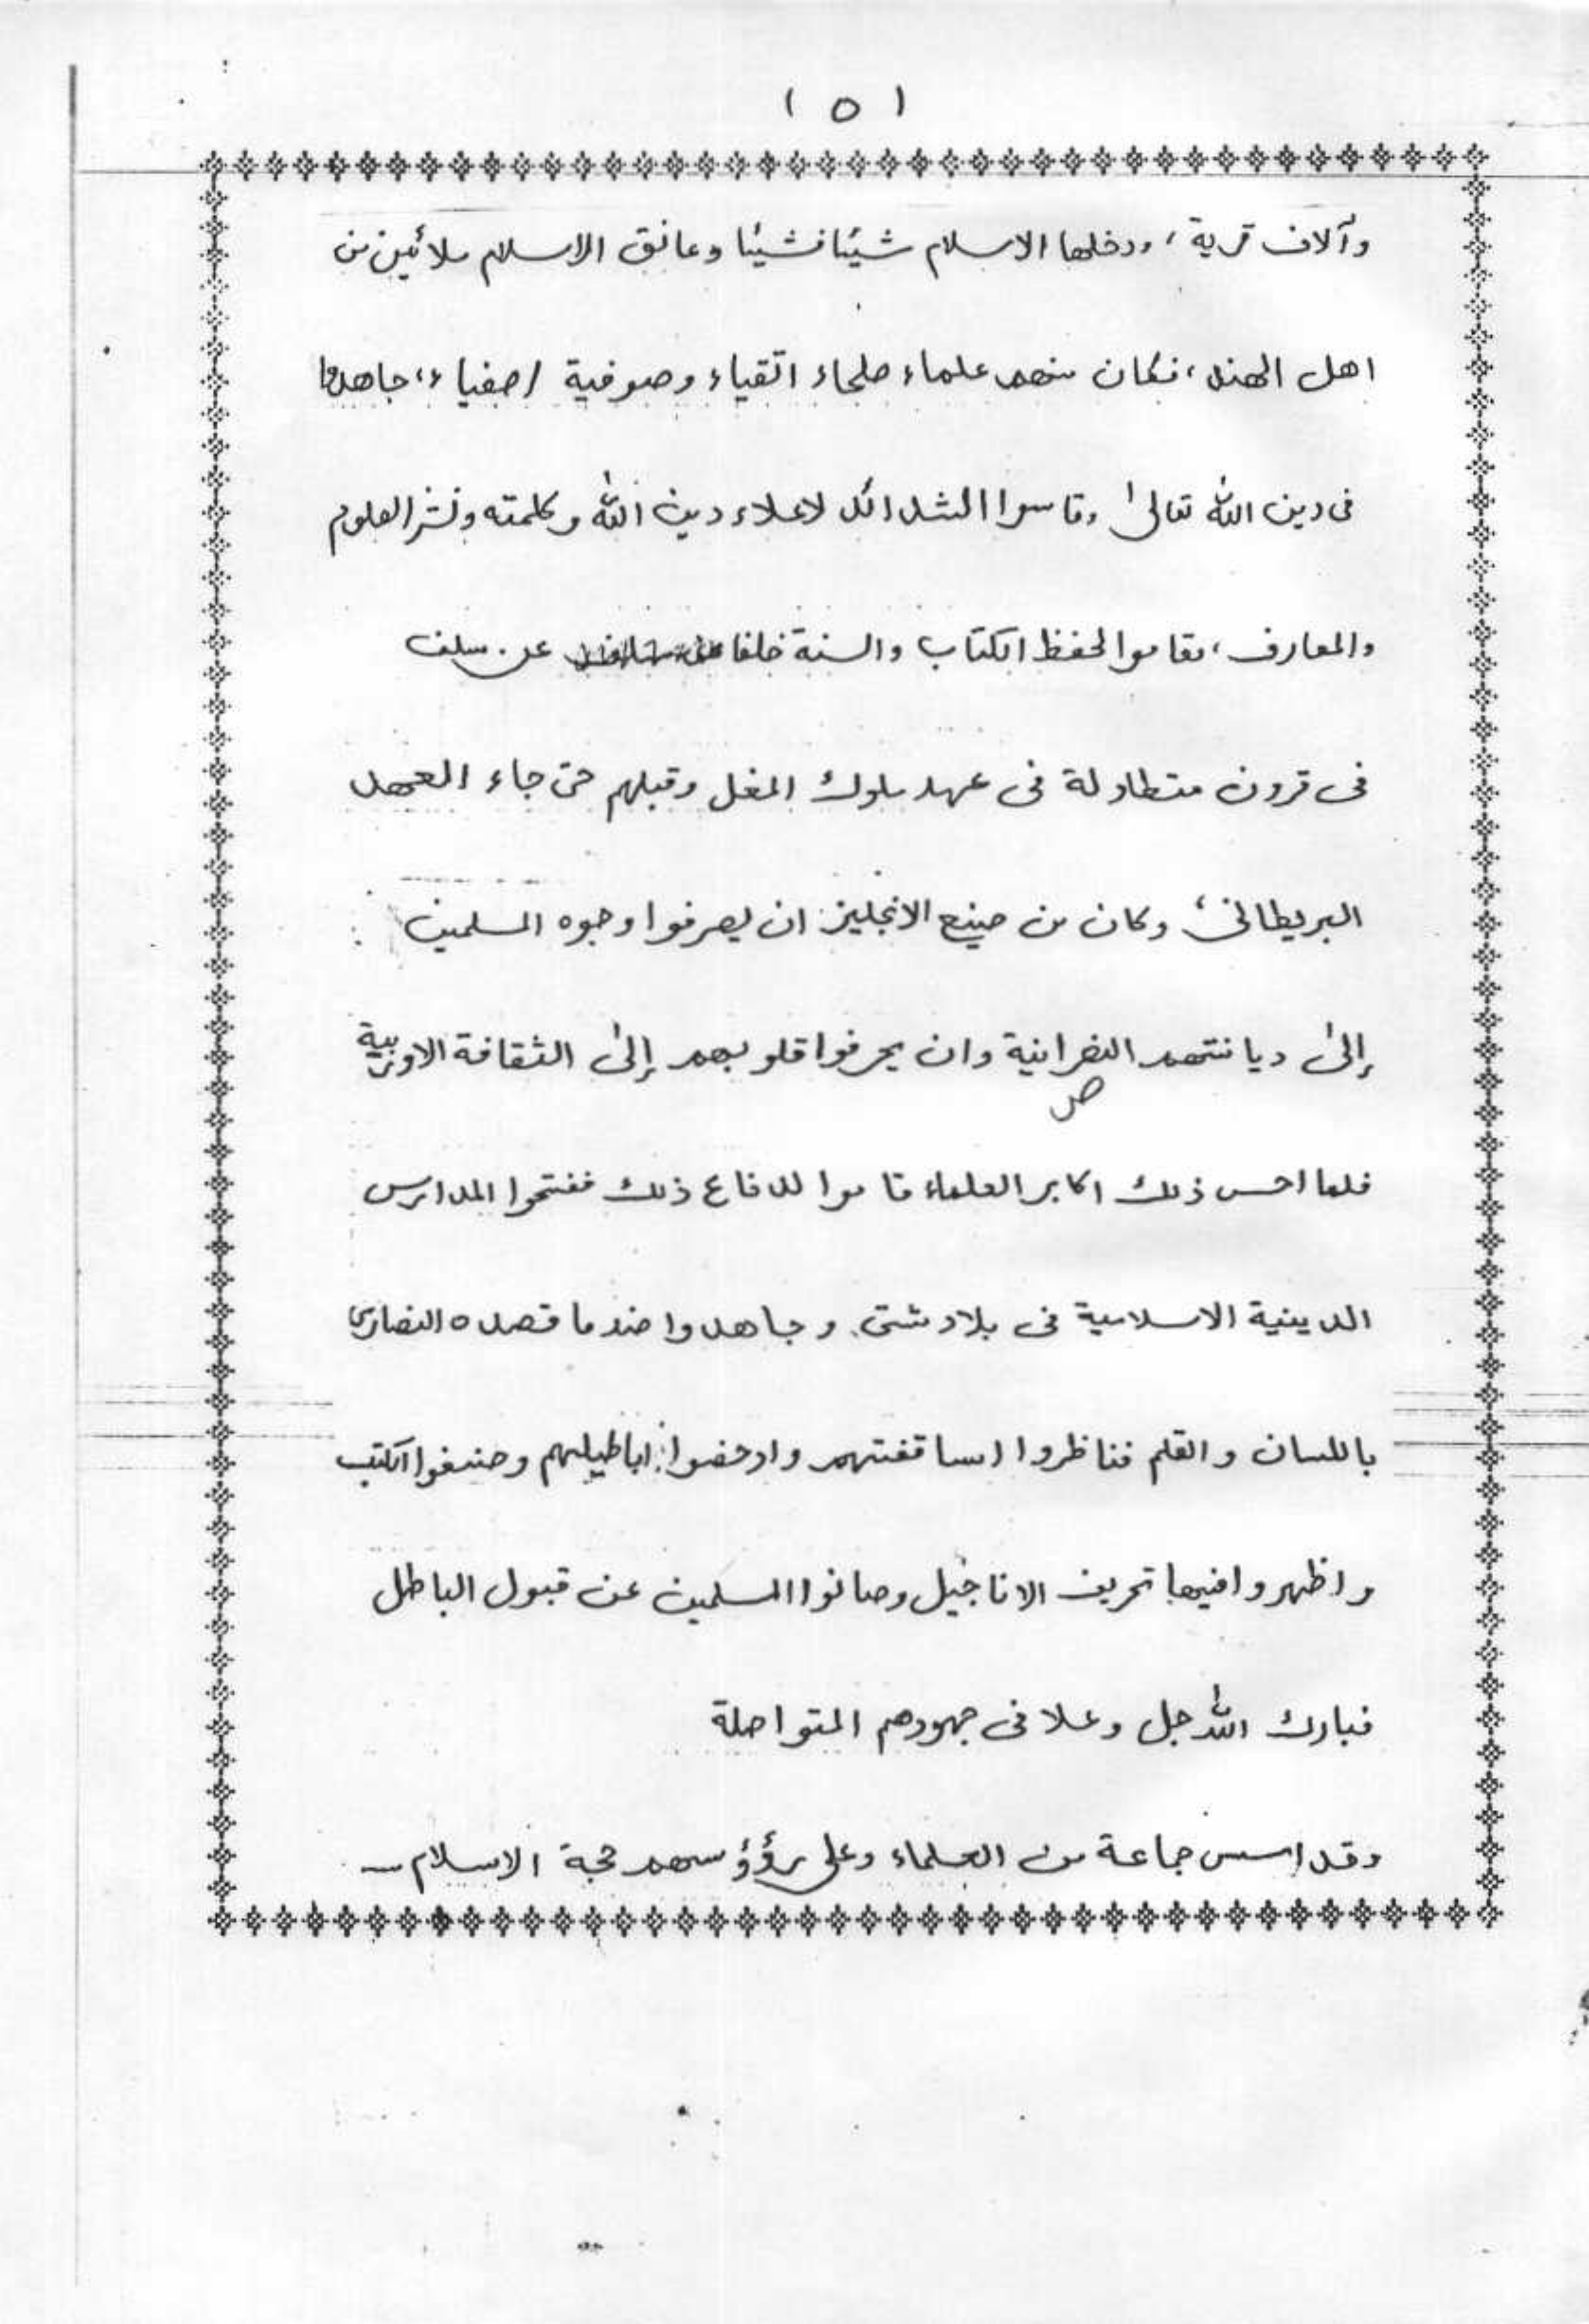 ( ٥ )
وآلاف قرية، ودخلها الاسلام شيئا فشيئا وعانق الاسلام ملائين من
اهل الهند، فكان منهم علماء صلحاء اتقياء وصوفية اصفياء، جاهدوا
فى دين الله تعالىٰ وقاسوا الشدائد لاعلاء دين الله وكلمته ونشر العلوم
والمعارف، فقاموا لحفظ الكتاب والسنة خلفا عن سلف
فى قرون متطاولة فى عهد ملوك المغل وقبلهم حتى جاء العهد
البريطانى، وكان من صنيع الانجليز ان يصرفوا وجوه المسلمين
إلىٰ ديانتهم النصرانية وان يحرفوا قلوبهم إلىٰ الثقافة الاوربية
ص
فلما احس ذلك اكابر العلماء قاموا للدفاع ذلك ففتحوا المدارس
الدينية الاسلامية فى بلاد شتى وجاهدوا ضد ما قصده النصارى
باللسان والقلم فناظروا اساقفتهم وادحضوا اباطيلهم وصنفوا الكتب
واظهروا فيها تحريف الاناجيل وصانوا المسلمين عن قبول الباطل
فبارك الله جل وعلا فى جهودهم المتواصلة
وقد اسس جماعة من العلماء وعلى رؤؤسهم حجة الاسلام